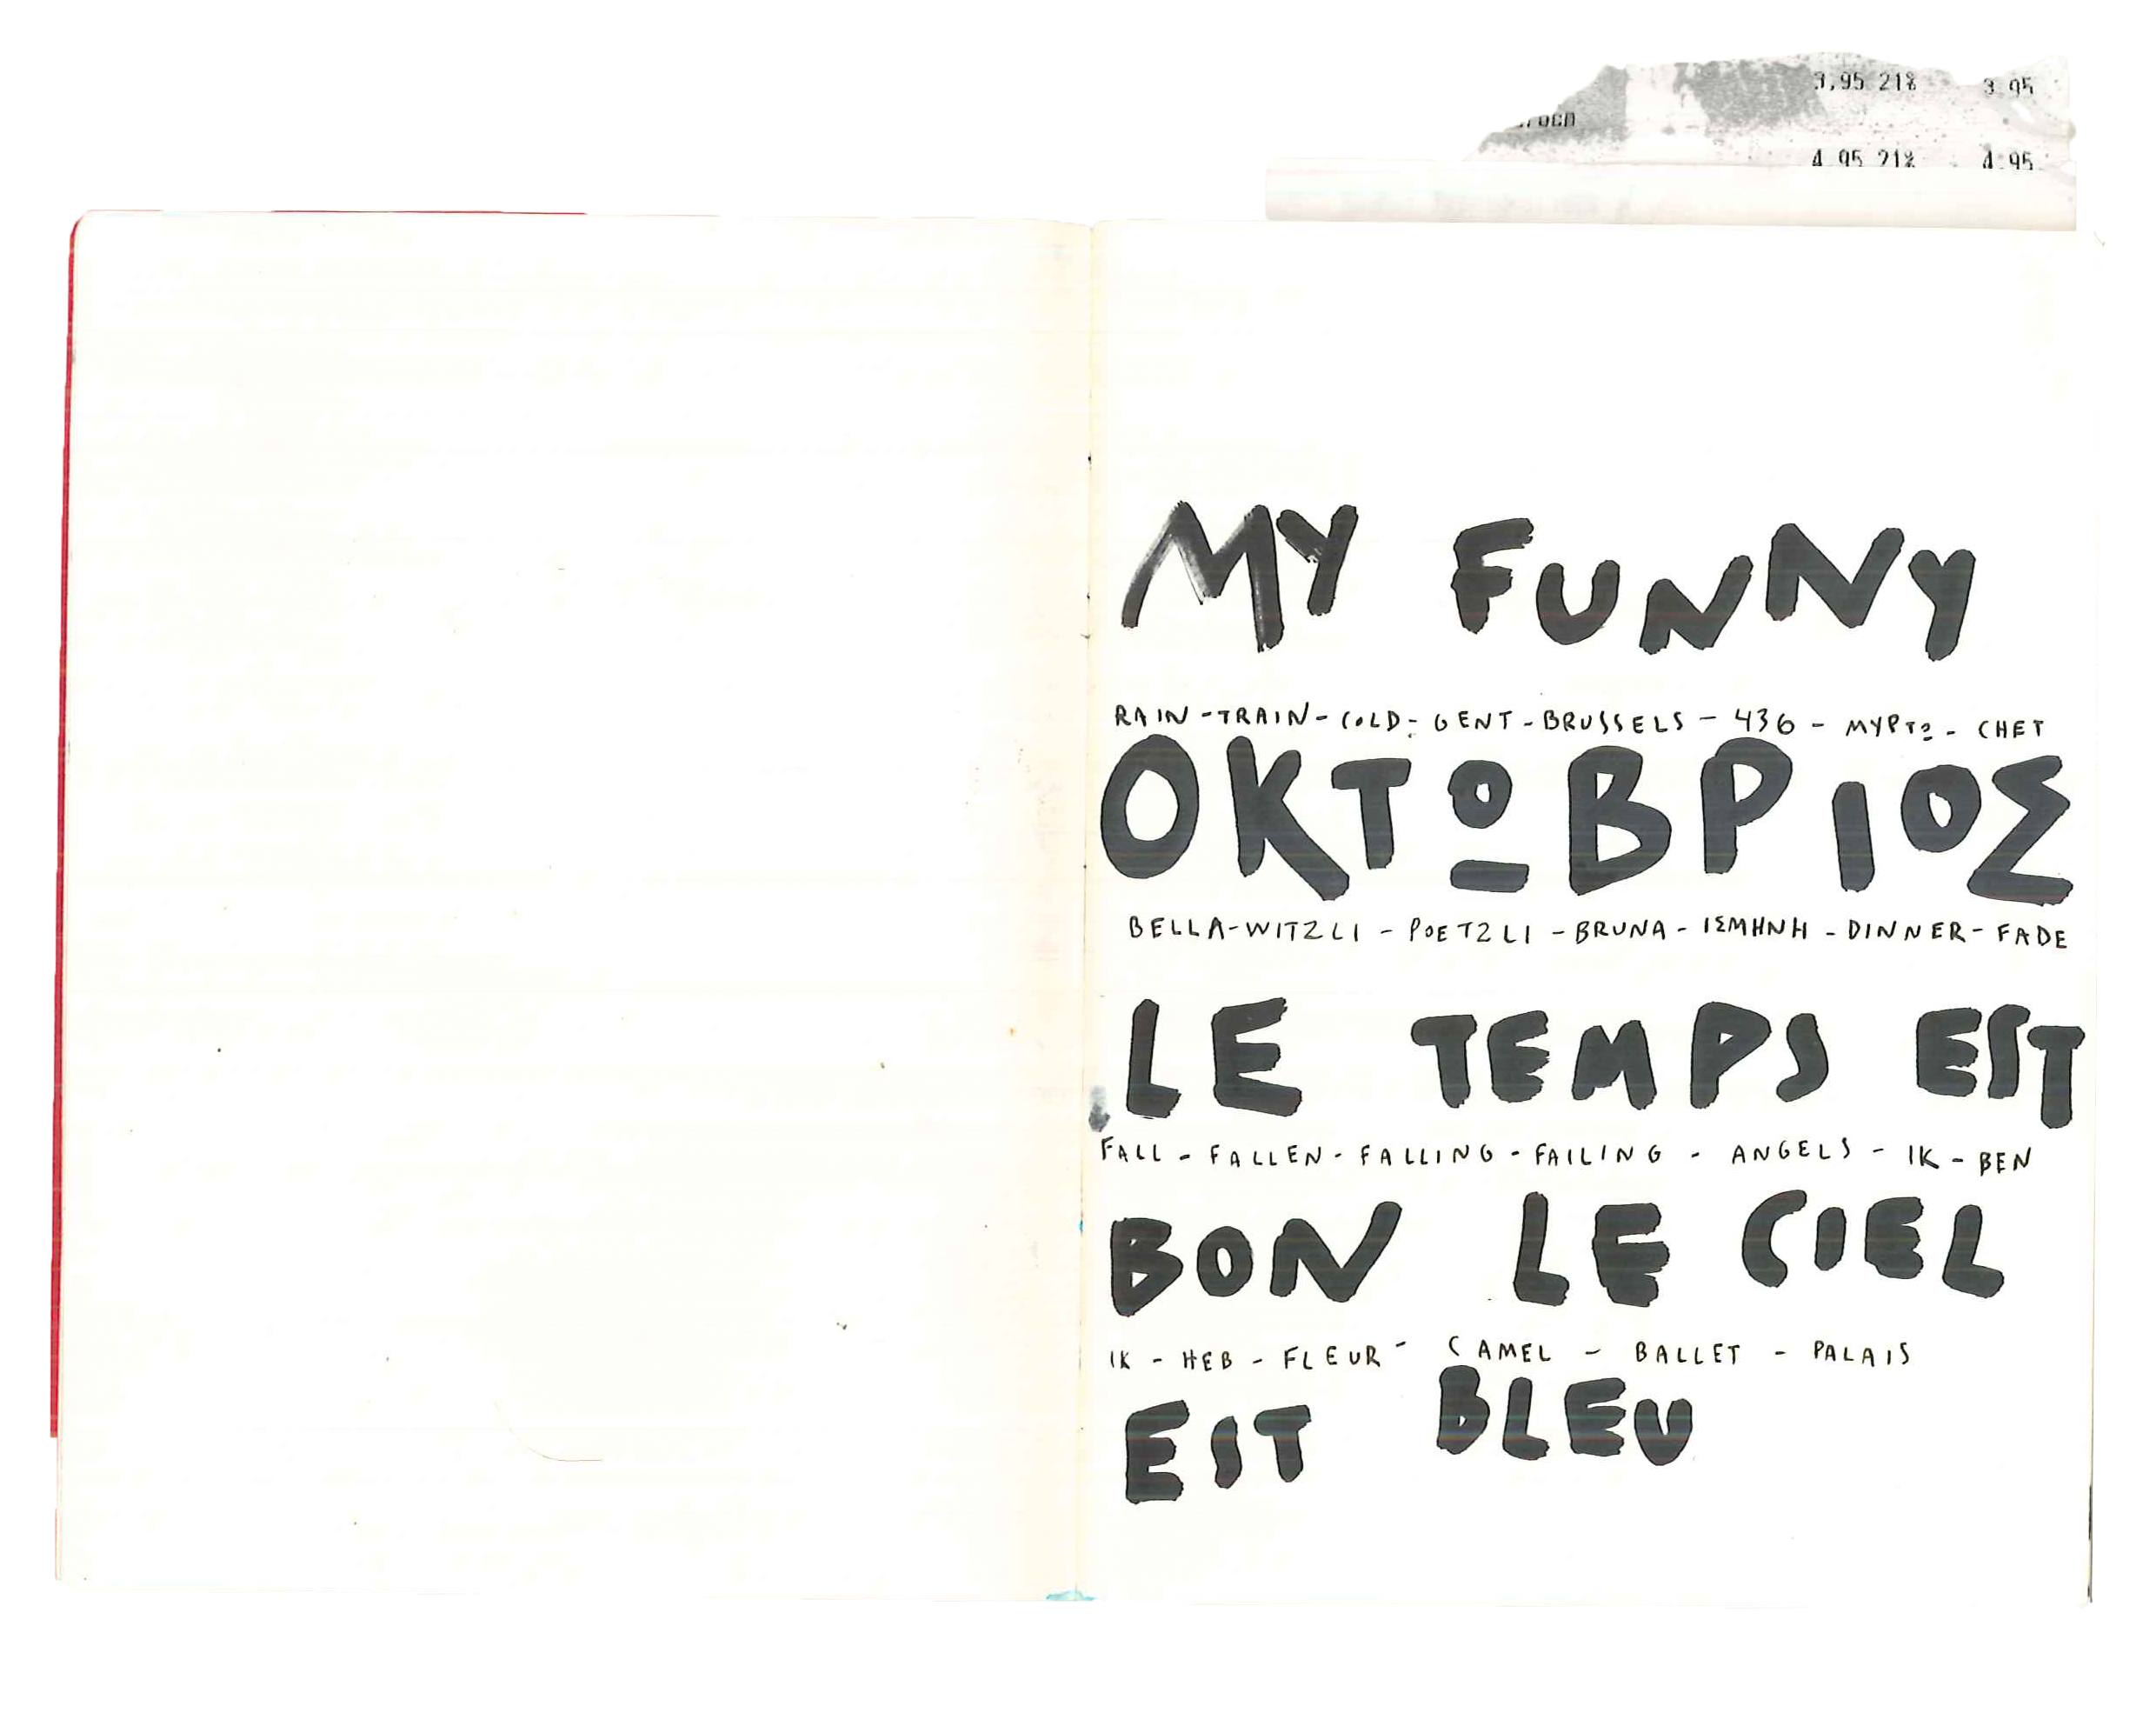 3,95 21% 3,95
4,95 21% 4,95
MY FUNNY
RAIN - TRAIN - COLD - GENT - BRUSSELS - 436 - ΜΥΡΤΩ - CHET
ΟΚΤΩΒΡΙΟΣ
BELLA - WITZLI - POETZLI - BRUNA - ΙΣΜΗΝΗ - DINNER - FADE
LE TEMPS EST
FALL - FALLEN - FALLING - FAILING - ANGELS - IK - BEN
BON LE CIEL
IK - HEB - FLEUR - CAMEL - BALLET - PALAIS
EST BLEU